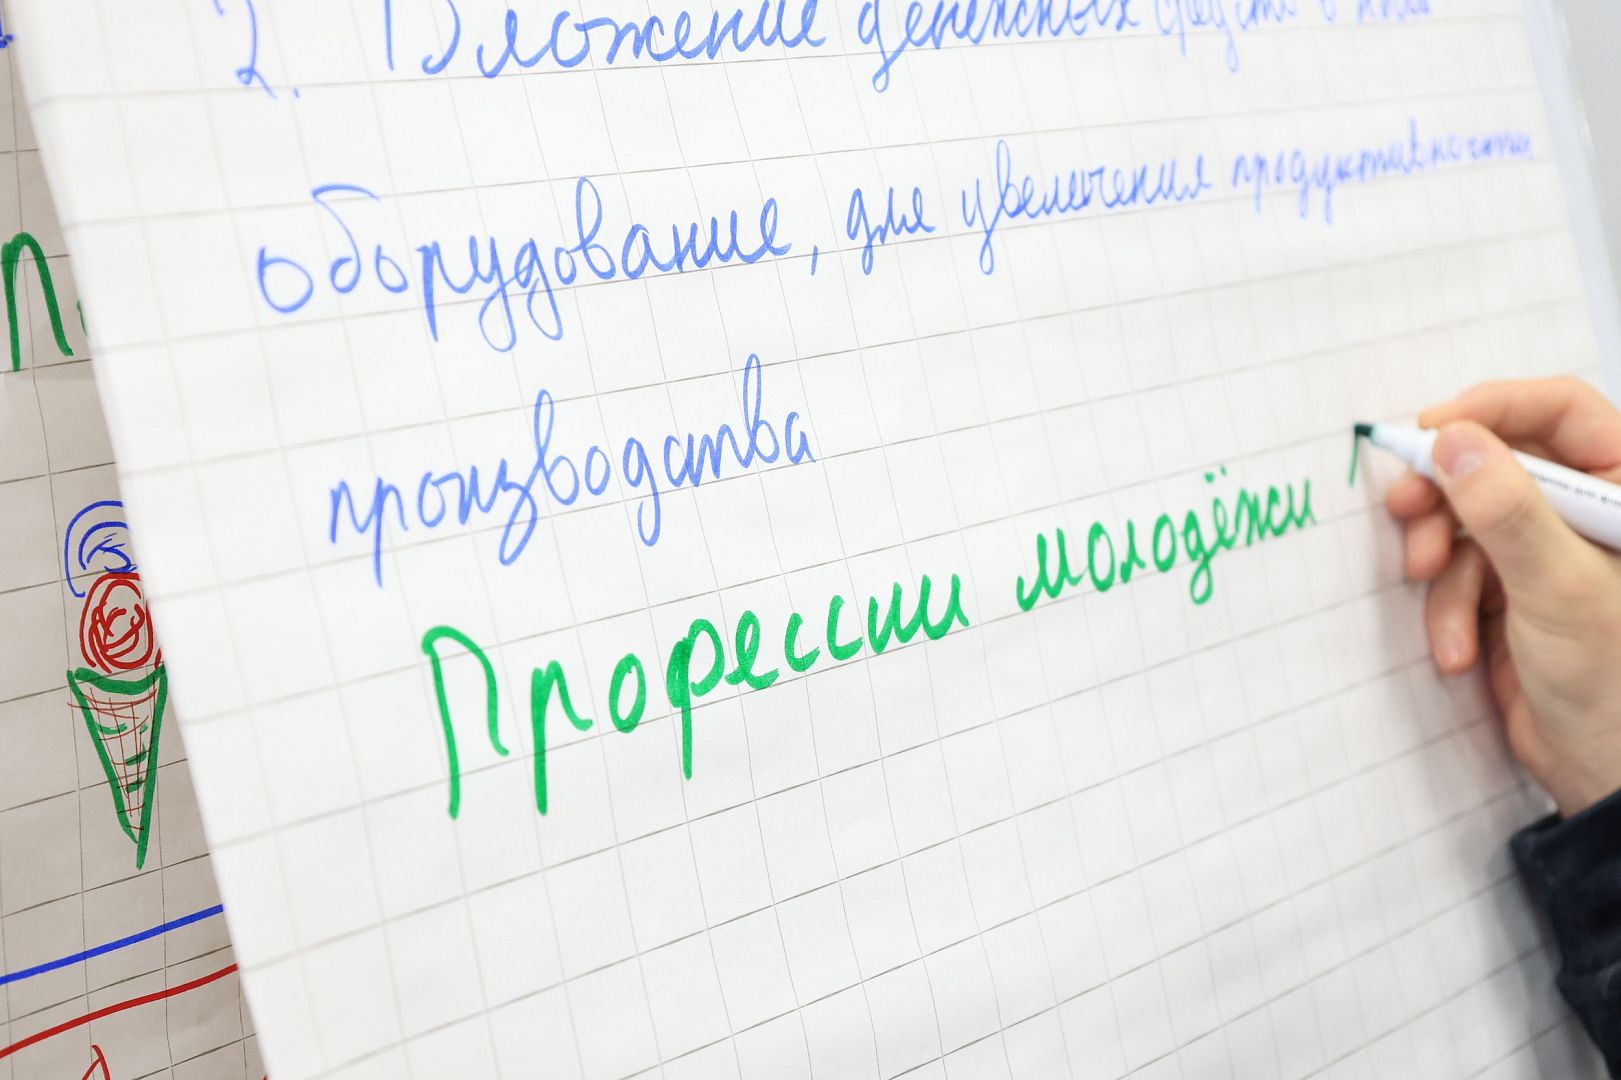 2. Вложение денежных средств в новое
оборудование, для увеличения продуктивности
производства
Профессии молодёжи
П